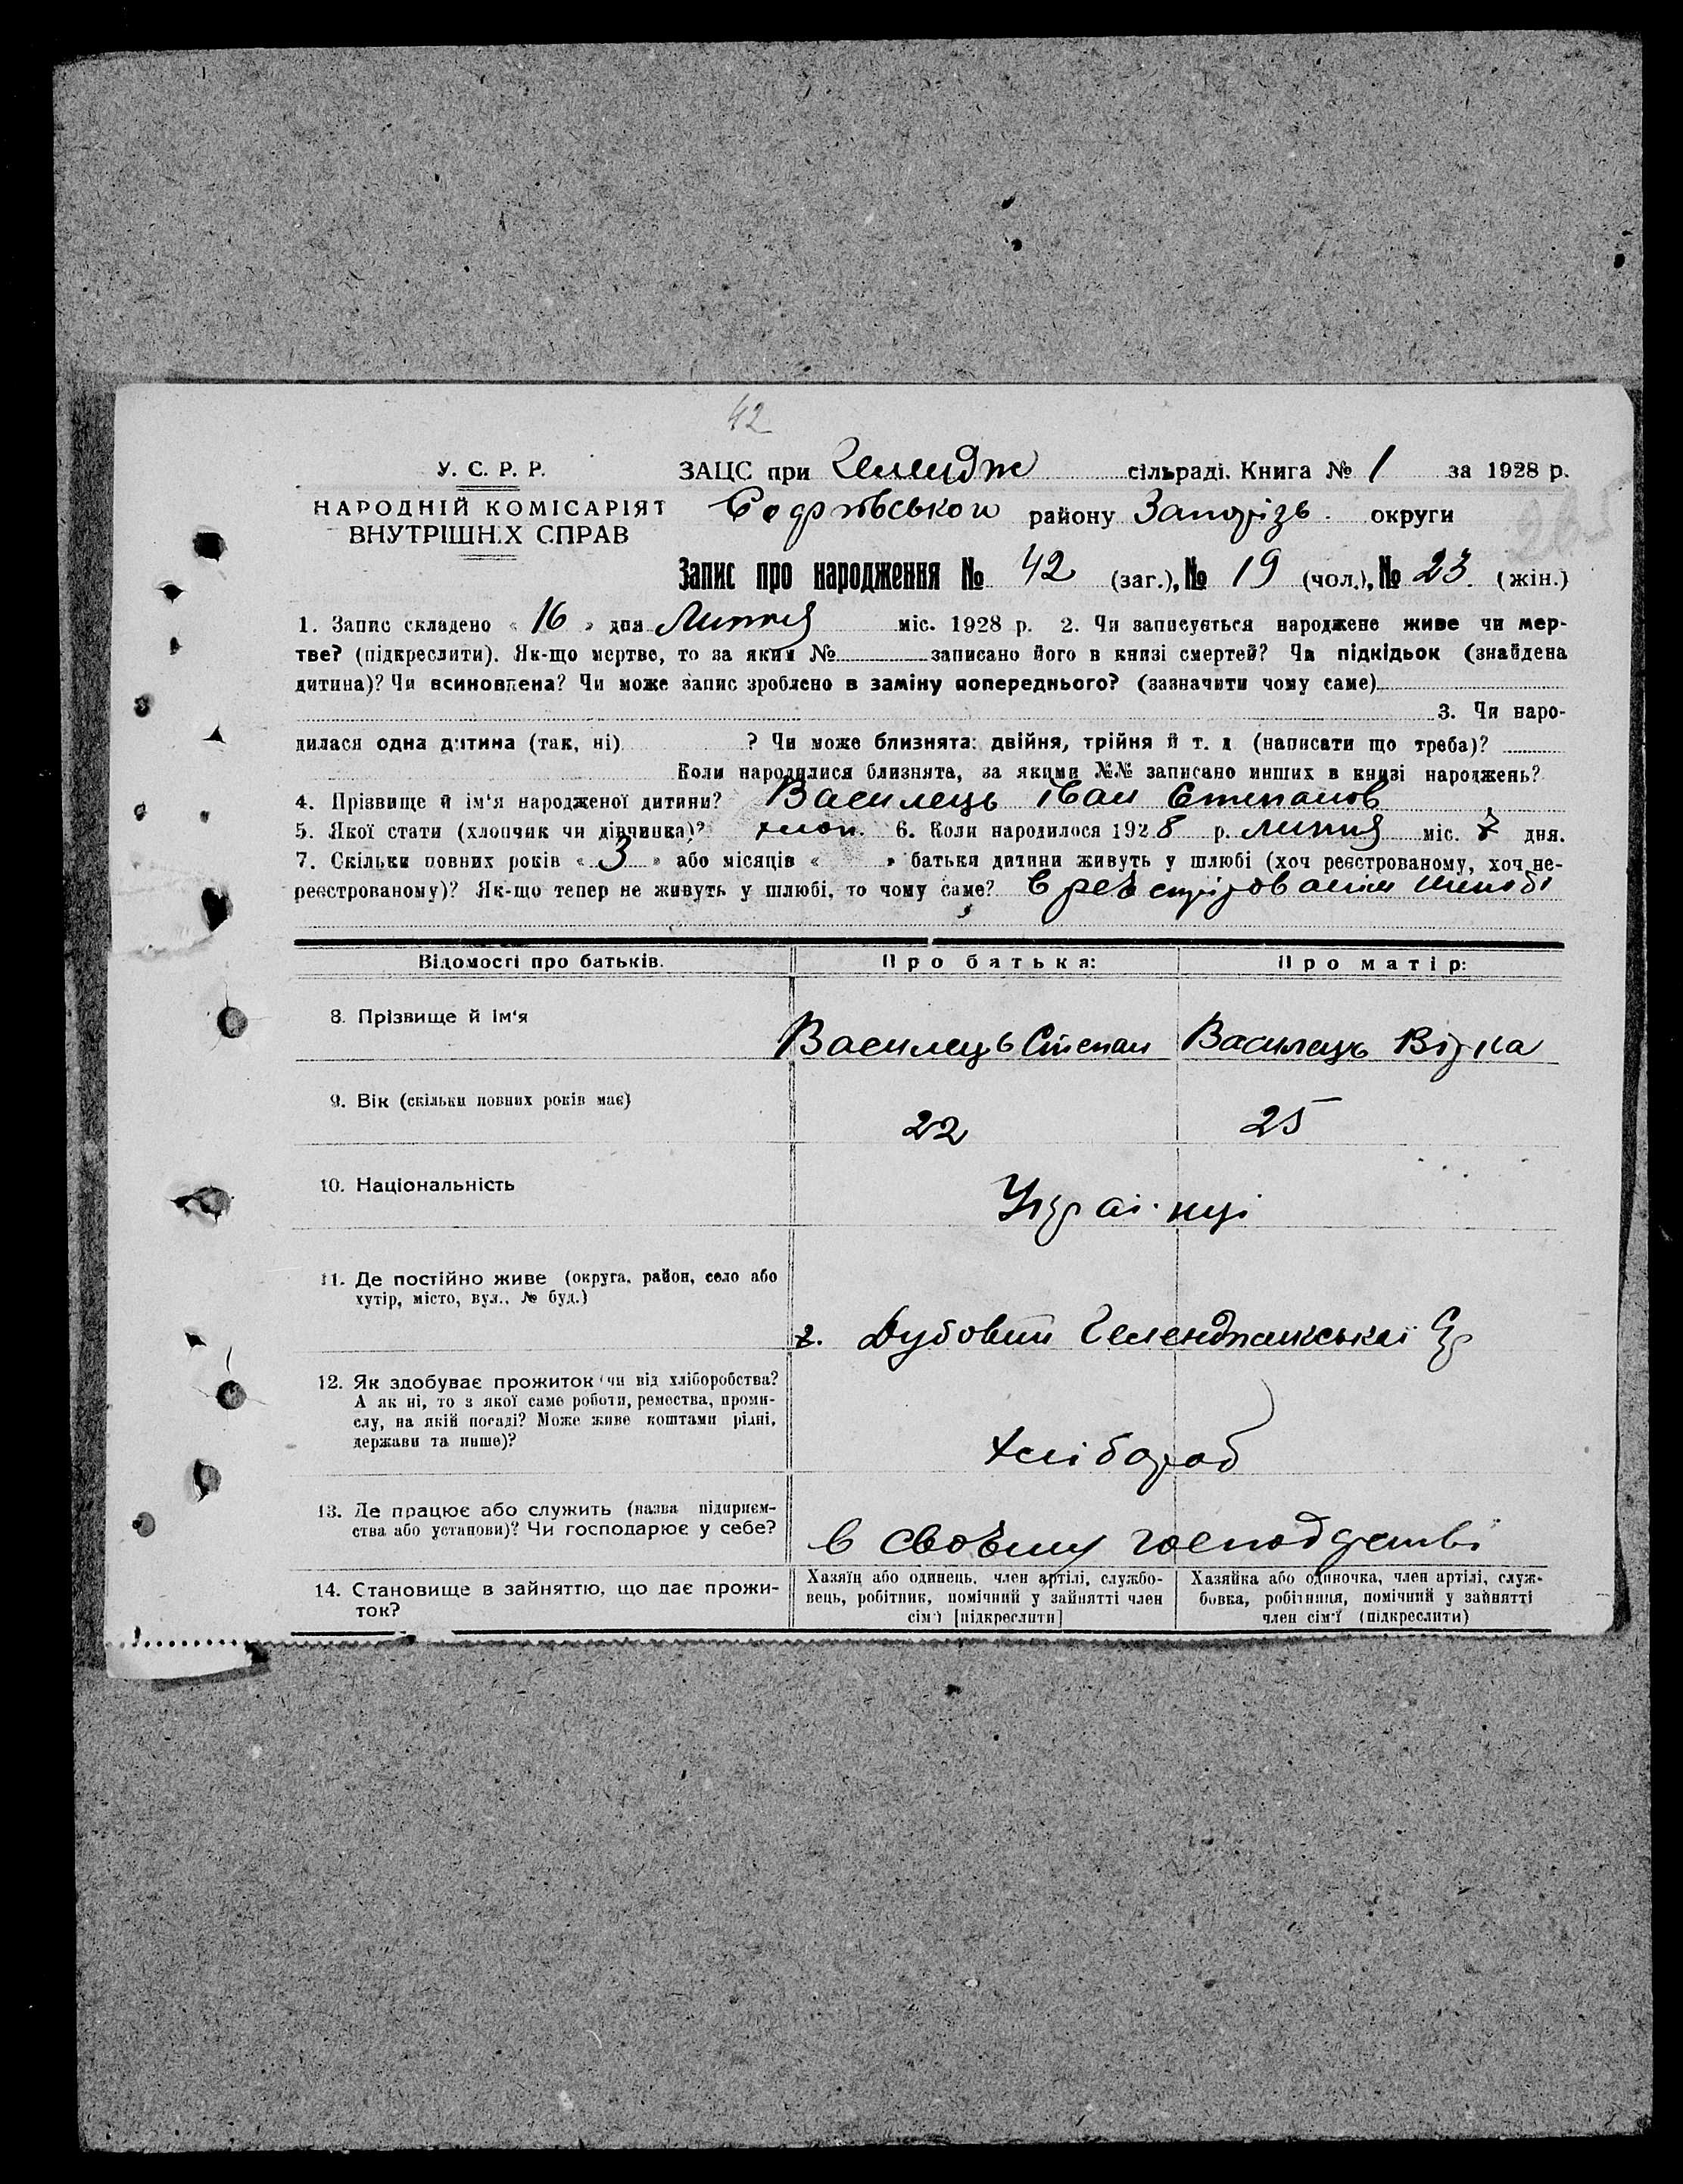 42
У. С. Р. Р.
ЗАЦС при Гелендж сільраді. Книга № 1 за 1928 р.
НАРОДНІЙ КОМІСАРІЯТ
ВНУТРІШНІХ СПРАВ
Софіївської району Запоріз. округи
265
Запис про народження № 42 (заг.), № 19 (чол.), № 23 (жін.)
1. Запис складено « 16 » дня Липня міс. 1928 р. 2. Чи записується народжене живе чи мер-
тве? (підкреслити). Як-що мертве, то за яким № записано його в книзі смертей? Чи підкідьок (знайдена
дитина)? Чи всиновлена? Чи може запис зроблено в заміну попереднього? (зазначити чому саме)
3. Чи наро-
дилася одна дитина (так, ні) ? Чи може близнята: двійня, трійня й т. д (написати що треба)?
Коли народилися близнята, за якими №№ записано инших в книзі народжень?
4. Прізвище й ім'я народженої дитини? Василець Іван Степанов
5. Якої стати (хлопчик чи дівчинка)? хлоп. 6. Коли народилося 1928 р. липня міс. 7 дня.
7. Скільки повних років « 3 » або місяців « » батьки дитини живуть у шлюбі (хоч реєстрованому, хоч не-
реєстрованому)? Як-що тепер не живуть у шлюбі, то чому саме? В реєстрірованім шлюбі
Відомості про батьків.
Про батька:
Про матір:
8. Прізвище й ім'я
Василець Степан
Василець Вірка
9. Вік (скільки повних років має)
22
25
10. Національність
Украі.нці
11. Де постійно живе (округа, район, село або
хутір, місто, вул., № буд.)
х. Дубовий Геленджикської Ср
12. Як здобуває прожиток (чи від хліборобства?
А як ні, то з якої саме роботи, ремества, проми-
слу, на якій посаді? Може живе коштами рідні,
держави та инше)?
Хлібороб
13. Де працює або служить (назва підприєм-
ства або установи)? Чи господарює у себе?
в своєму господрстві
14. Становище в зайняттю, що дає прожи-
ток?
Хазяїн або одинець, член артілі, службо-
вець, робітник, помічний у зайнятті член
сім'ї [підкреслити]
Хазяйка або одиночка, член артілі, служ-
бовка, робітниця, помічний у зайнятті
член сім'ї (підкреслити)